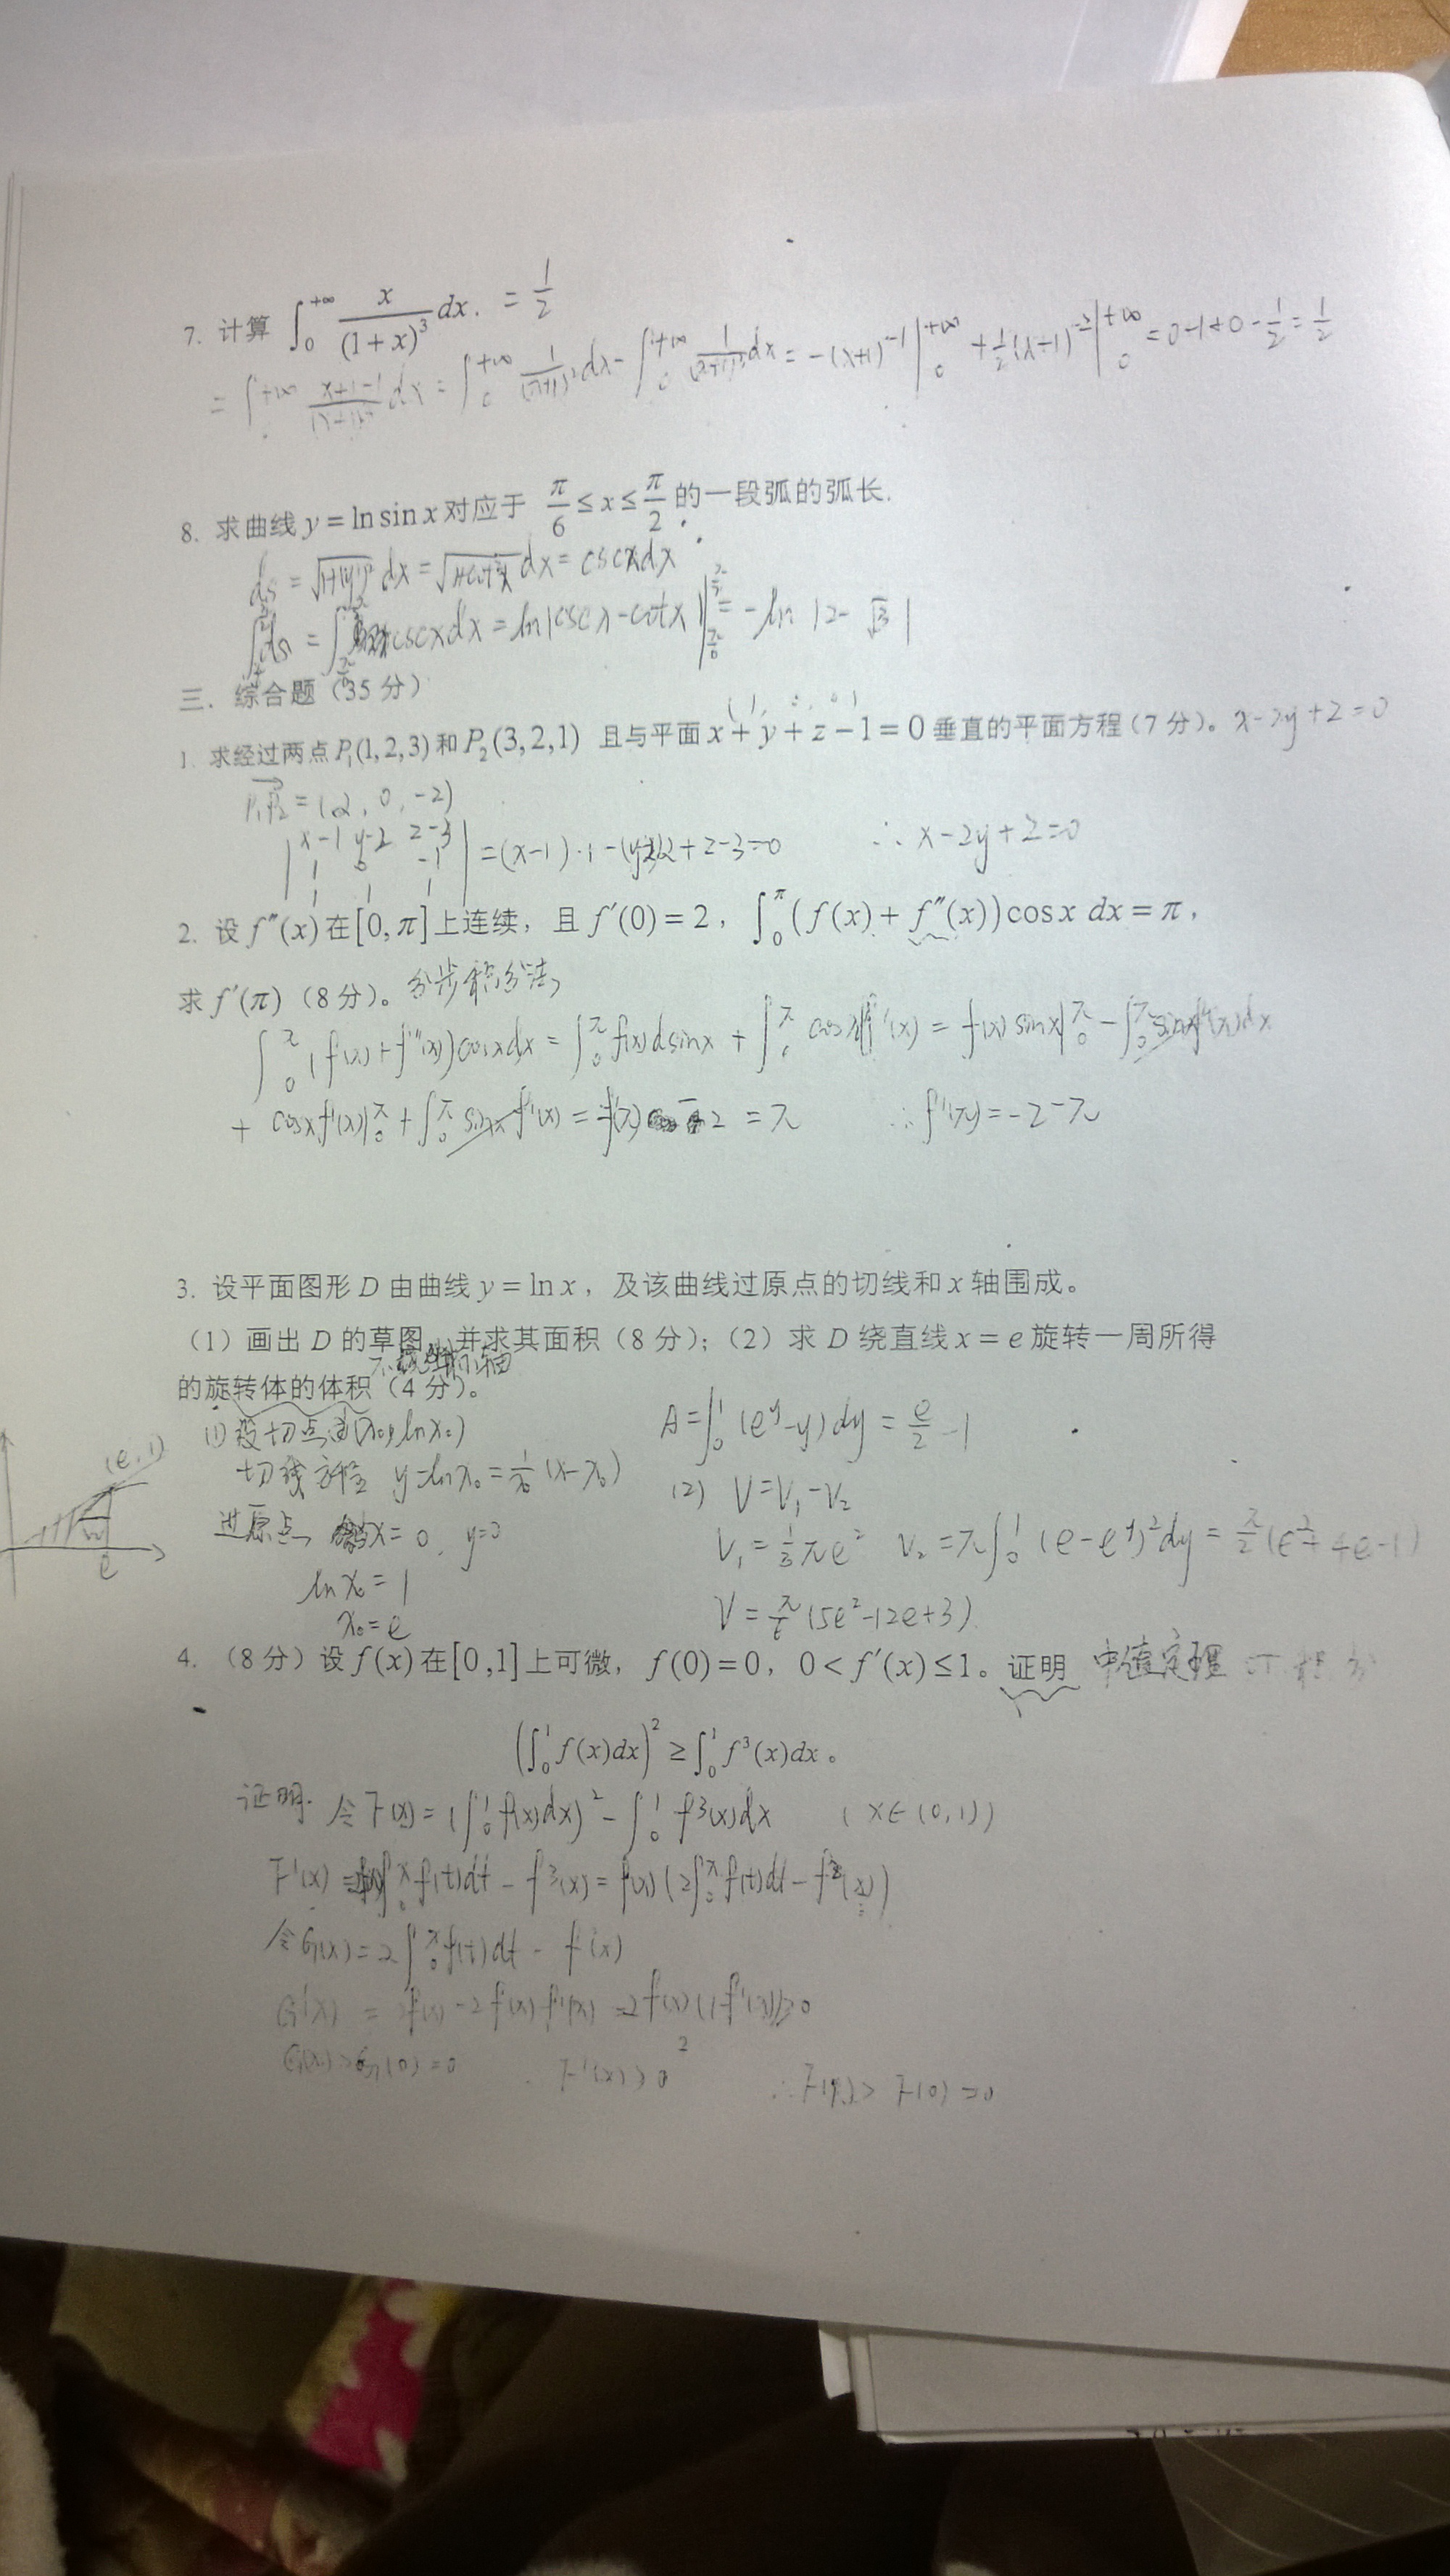 7. 计算 ∫₀^{+∞} x/(1+x)³ dx. = 1/2
= ∫^{+∞} (x+1-1)/(x+1)³ dx = ∫₀^{+∞} 1/(x+1)² dx - ∫₀^{+∞} 1/(x+1)³ dx = -(x+1)⁻¹|₀^{+∞} + 1/2(x+1)⁻²|₀^{+∞} = 0-1+0-1/2 = 1/2
8. 求曲线 y = ln sin x 对应于 π/6 ≤ x ≤ π/2 的一段弧的弧长.
ds = √(1+(y')²) dx = √(1+cot²x) dx = cscxdx
∫ds = ∫cscxdx = ln|cscx-cotx| |_{π/6}^{π/2} = -ln|2-√3|
三. 综合题（35 分）
1. 求经过两点 P₁(1,2,3) 和 P₂(3,2,1) 且与平面 x+y+z-1=0 垂直的平面方程（7 分）。x-2y+z=0
P₁P₂ = (2, 0, -2)
| x-1 y-2 z-3 |
| 1 0 -1 | = (x-1)·1-(y-2)2+z-3=0 ∴ x-2y+z=0
| 1 1 1 |
2. 设 f″(x) 在 [0,π] 上连续，且 f′(0)=2，∫₀^π (f(x)+f″(x))cos x dx = π，
求 f′(π)（8 分）。分步积分法
∫₀^π (f(x)+f″(x))cosxdx = ∫₀^π f(x)dsinx + ∫₀^π cosxdf'(x) = f(x)sinx|₀^π - ∫₀^π sinxf'(x)dx
+ cosxf'(x)|₀^π + ∫₀^π sinxf'(x) = -f'(π) - 2 = π ∴ f'(π) = -2-π
3. 设平面图形 D 由曲线 y = ln x，及该曲线过原点的切线和 x 轴围成。
（1）画出 D 的草图，并求其面积（8 分）；（2）求 D 绕直线 x = e 旋转一周所得
的旋转体的体积（4 分）。
(1) 设切点过(x₀, lnx₀) A = ∫₀¹ (e^y-y)dy = e/2 - 1
(e, 1)
切线方程 y-lnx₀ = 1/x₀ (x-x₀) (2) V=V₁-V₂
过原点 x=0, y=0 V₁ = 1/3 πe² V₂ = π∫₀¹ (e-e^y)²dy = π/2 (e²+4e-1)
e
lnx₀ = 1
x₀ = e V = π/6 (5e²-12e+3)
4. （8 分）设 f(x) 在 [0,1] 上可微，f(0)=0，0<f′(x)≤1。证明 中值定理
(∫₀¹ f(x)dx)² ≥ ∫₀¹ f³(x)dx。
证明. 令 F(x) = (∫₀¹ f(x)dx)² - ∫₀¹ f³(x)dx (x∈(0,1))
F'(x) = ∫₀^x f(t)dt - f³(x) = f(x)(2∫₀^x f(t)dt - f²(x))
令 G(x) = 2∫₀^x f(t)dt - f²(x)
G'(x) = 2f(x) - 2f(x)f'(x) = 2f(x)(1-f'(x)) ≥ 0
G(x) > G(0) = 0 F'(x) > 0 ∴ F(x) > F(0) = 0